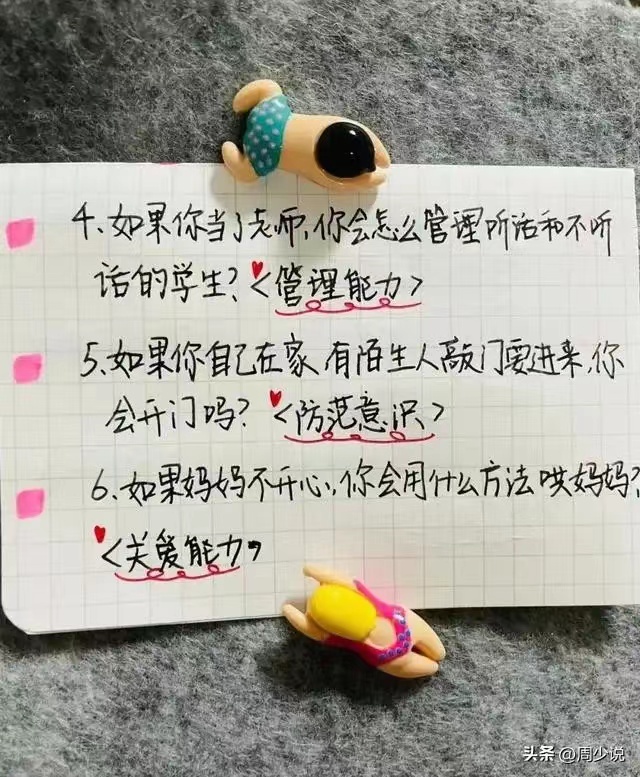 4、如果你当了老师,你会怎么管理听话和不听
话的学生?<管理能力>
5、如果你自己在家,有陌生人敲门要进来,你
会开门吗?<防范意识>
6、如果妈妈不开心,你会用什么方法哄妈妈?
<关爱能力>
头条 @周少说